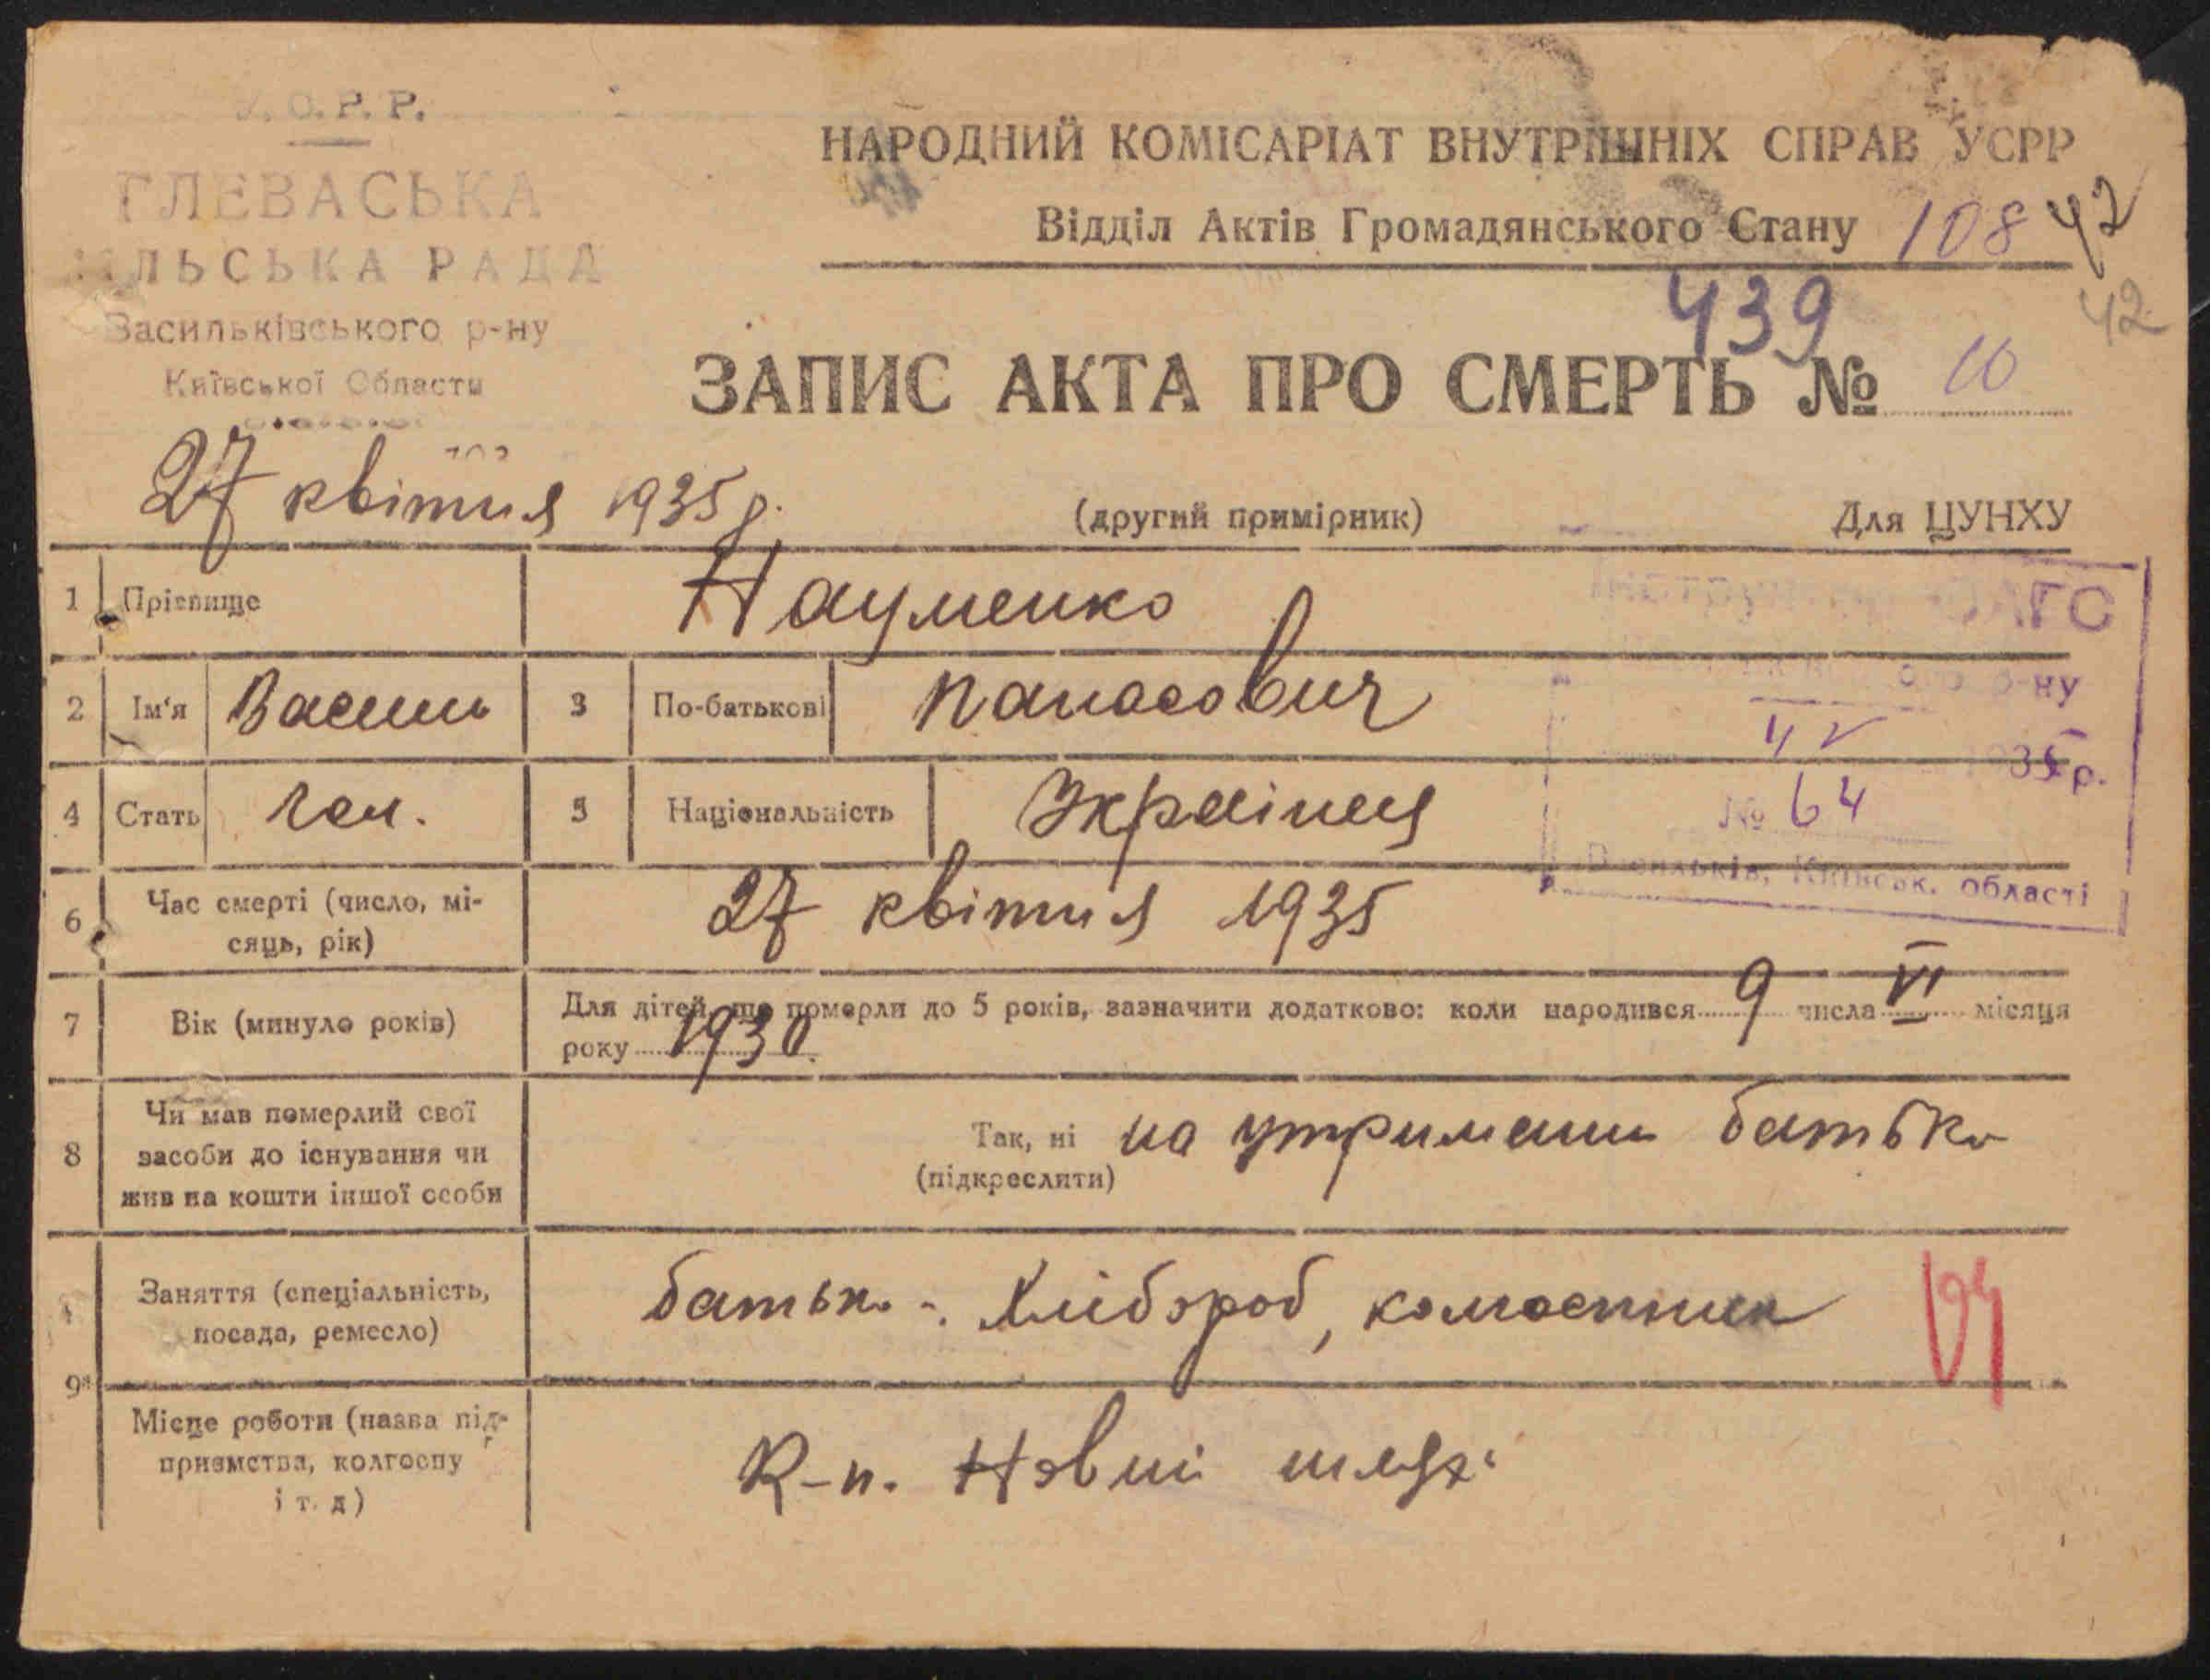 У.С.Р.Р.
ГЛЕВАСЬКА
СІЛЬСЬКА РАДА
Васильківського р-ну
Київської Області
НАРОДНИЙ КОМІСАРІАТ ВНУТРІШНІХ СПРАВ УСРР
Відділ Актів Громадянського Стану 108 42
42
439
ЗАПИС АКТА ПРО СМЕРТЬ № 10
27 квітня 1935 р.
(другий примірник)
Для ЦУНХУ
1 Прізвище Науменко
2 Ім'я Василь 3 По-батькові Панасович
4 Стать чол. 5 Національність Українець
ЗАГС
р-ну
4 V 1935 р.
№ 64
Васильків, Київськ. області
6 Час смерті (число, мі-
сяць, рік) 27 квітня 1935
7 Вік (минуло років) Для дітей, що померли до 5 років, зазначити додатково: коли народився 9 числа VI місяця
року 1930.
8 Чи мав померлий свої
засоби до існування чи
жив на кошти іншої особи
Так, ні на утриманні батька
(підкреслити)
Заняття (спеціальність,
посада, ремесло) батько - Хлібороб,
9а
Місце роботи (назва під-
приємства, колгоспу
і т. д)
К-п. Новий шлях